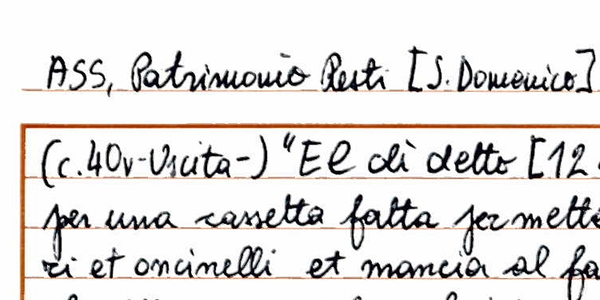 ASS, Patrimonio Resti [S. Domenico]
(c. 40v-Uscita-) "E El di detto [12
per una cassetta fatta per mette
ri et oncinelli et mancia al fa